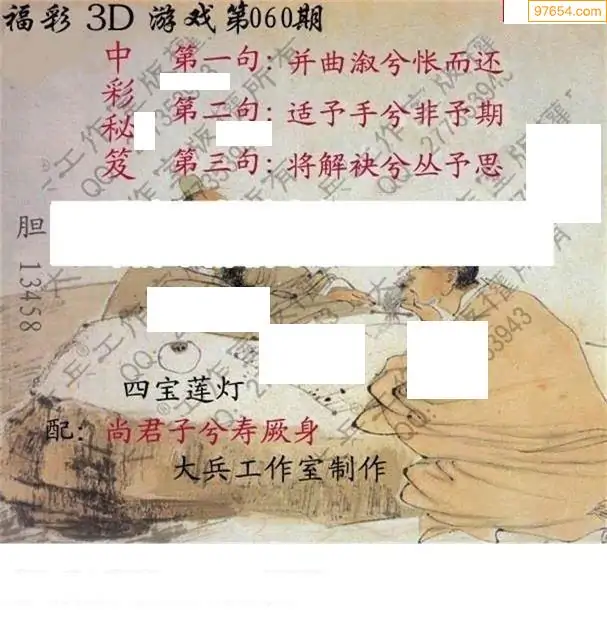 97654.com
福彩 3D 游戏第060期
中彩秘笈
第一句：并曲溆兮怅而还
第二句：适予手兮非予期
第三句：将解袂兮丛予思
胆 13458
四宝莲灯
配：尚君子兮寿厥身
大兵工作室制作